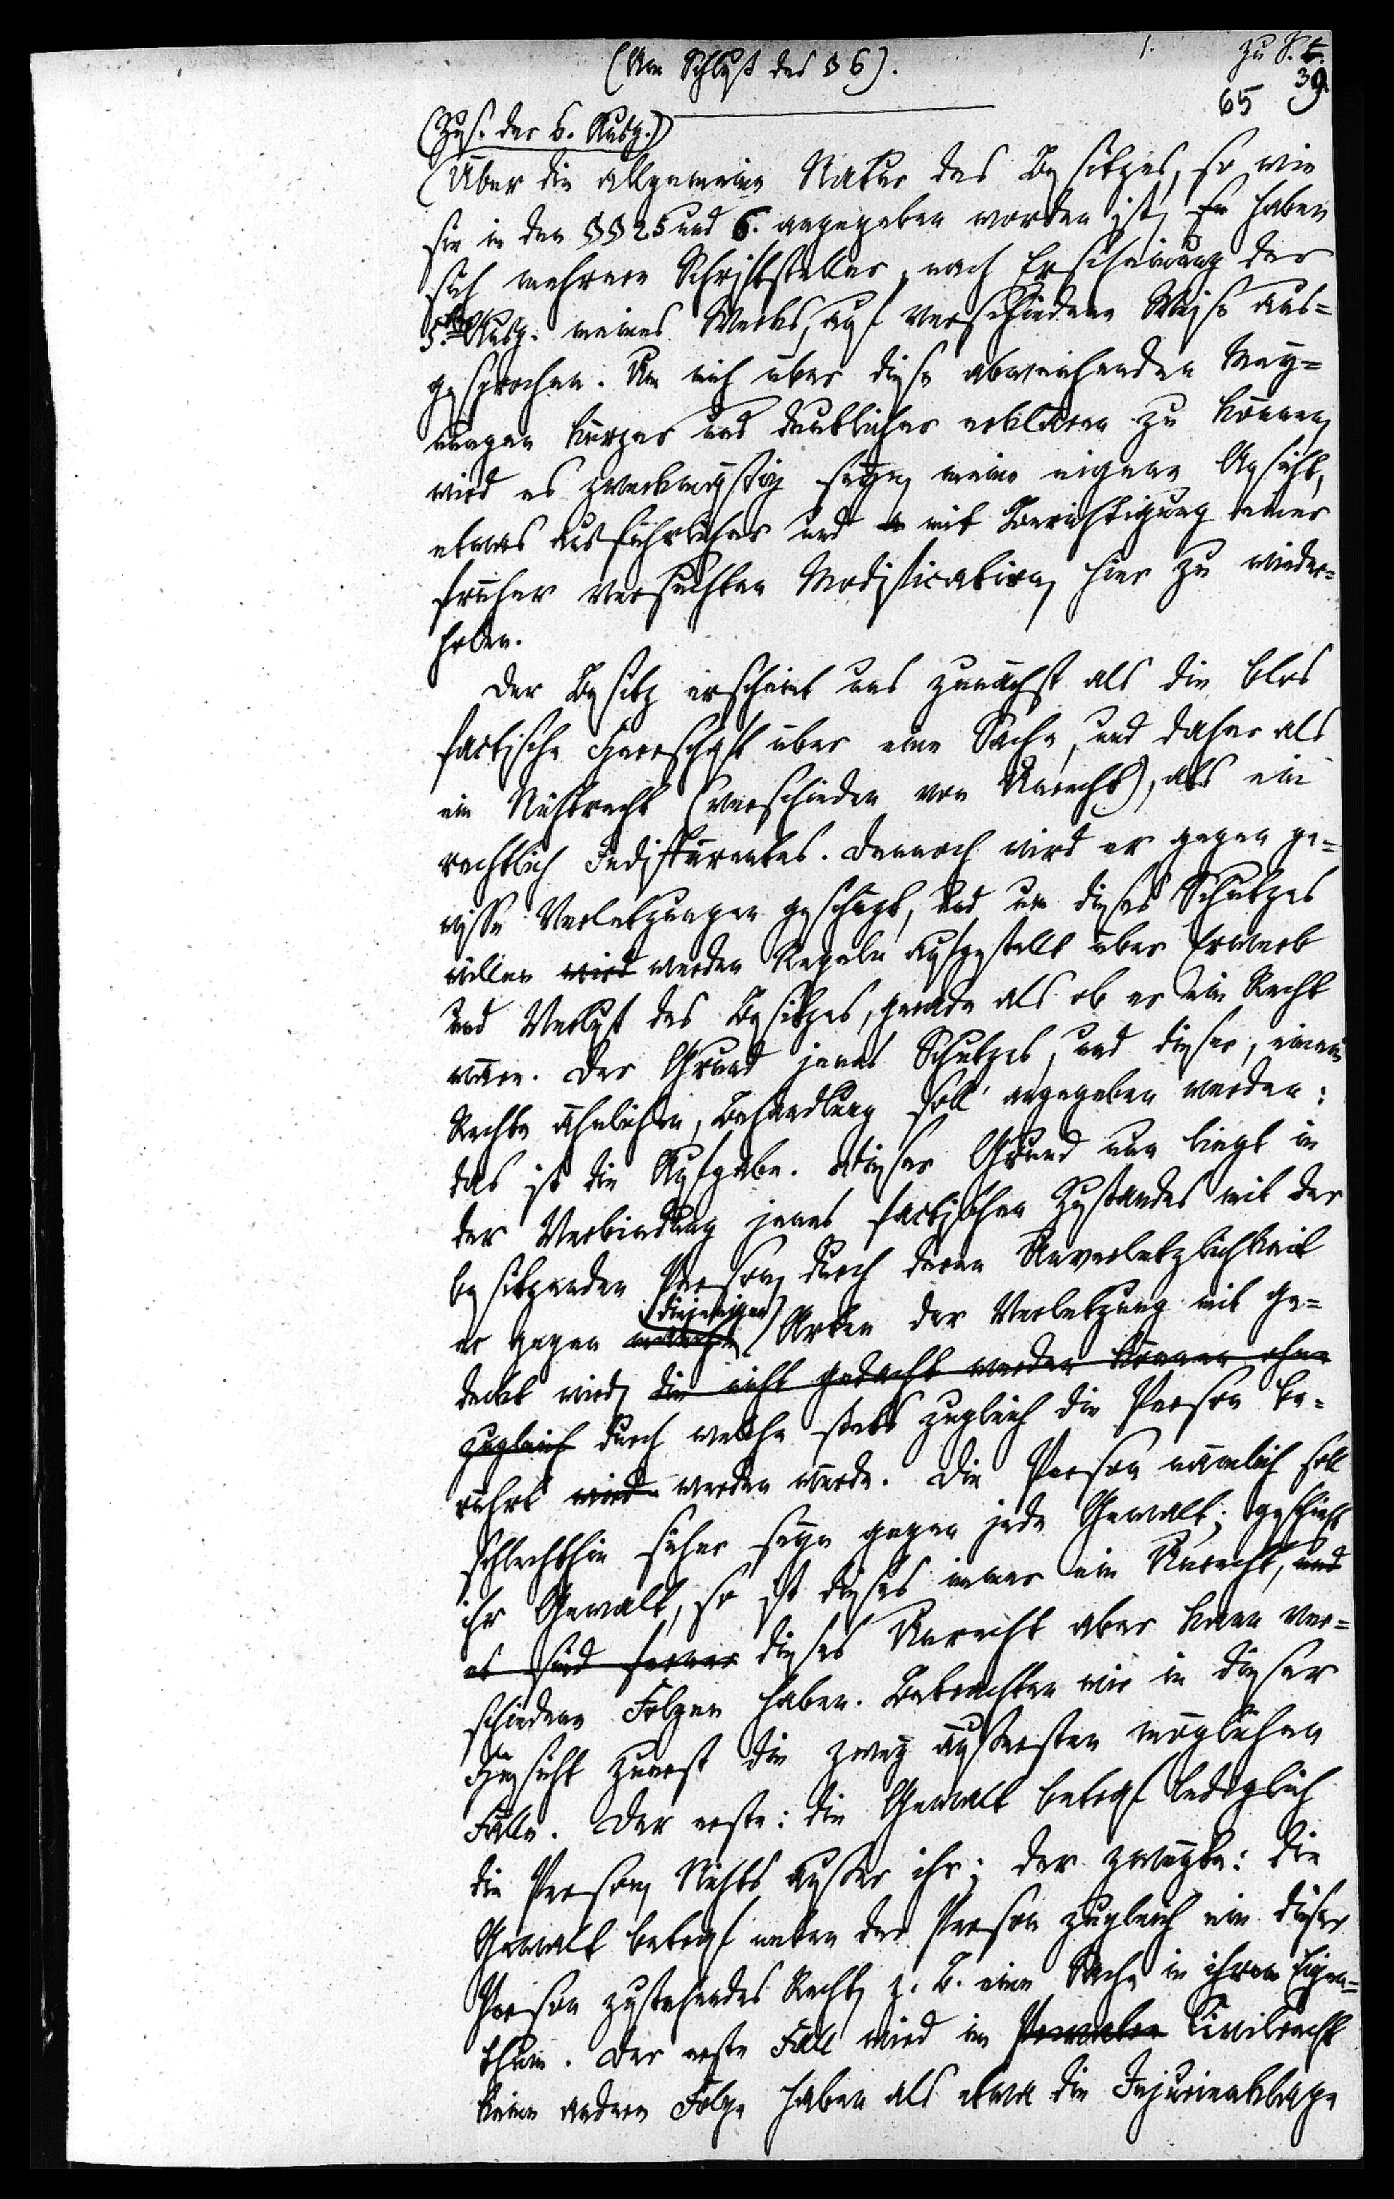 1.
zu S. 
39.
(Am Schluß des § 6).
65
(Zus. der 6. Ausg.)
(Über die allgemeine Natur des Besitzes, so wie
sie in den §§ 2 5 und 6. angegeben worden ist, haben
sich mehrere Schriftsteller, nach Erscheinung der
5ten Ausg. meines Werks, auf verschiedene Weise aus=
gesprochen. Um mich über diese abweichenden Mey=
nungen kürzer und deutlicher erklären zu können,
wird es zweckmäßig seyn, meine eigene Ansicht,
etwas ausführlicher und mit Berichtigung einer
früher versuchten Modification, hier zu wieder=
holen.
Der Besitz erscheint uns zunächst als die blos
factische Herrschaft über eine Sache, und daher als
ein Nichtrecht (verschieden von Unrecht), als ein
rechtlich Indifferentes. Dennoch wird er gegen ge=
wisse Verletzungen geschützt, und um dieses Schutzes
willen wird werden Regeln aufgestellt über Erwerb
und Verlust des Besitzes, gerade als ob er ein Recht
wäre. Der Grund jenes Schutzes, und dieser, einem
Rechte ähnlichen, Behandlung soll angegeben werden:
das ist die Aufgabe. Dieser Grund nun liegt in
der Verbindung jenes factischen Zustandes mit der
besitzenden Person, durch deren Unverletzlichkeit
diejenigen
er gegen Arten der Verletzung mit ge=
deckt wird, die nicht gedacht werden können ohne
zugleich durch welche stets zugleich die Person be=
rührt wird werden würde. Die Person nämlich soll
schlechthin sicher seyn gegen jede Gewalt; geschieht
ihr Gewalt, so ist dieses immer ein Unrecht, und
es sind ferner dieses Unrecht aber kann ver=
schiedene Folgen haben. Betrachten wir in dieser
Hinsicht zuerst die zwey äußersten möglichen
Fälle. Der erste: die Gewalt betraf lediglich
die Person, Nichts außer ihr; der zweyte: die
Gewalt betraf neben der Person zugleich ein dieser
Person zustehendes Recht, z. B. eine Sache in ihrem Eigen=
thum. Der erste Fall wird im Civilrecht
keine andere Folge haben als etwa die Injurienklage